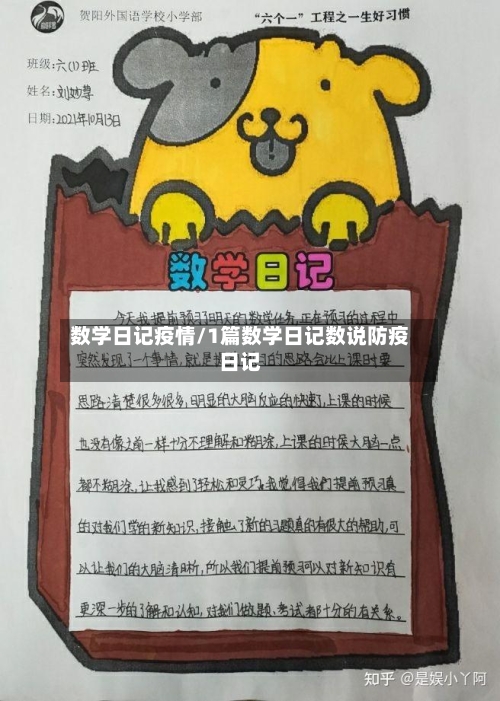 贺阳外国语学校小学部
“六个一”工程之一生好习惯
班级:六(1)班
姓名:刘妙尊
日期:2021年10月13日
数学日记
今天我提前预习了明天的数学任务,正在预习的过程中
数学日记疫情/1篇数学日记数说防疫
日记
突然发现了一个事情,就是 的思路会比上课时要
思路清楚很多很多,明显的大脑反应的快速了,上课的时候
也没有像之前一样十分不理解和糊涂,上课的时侯大脑一点
都不糊涂,让我感到了轻松和灵巧。我觉得我们提前预习真
的对我们学的新知识,接触了新的习题真的有很大的帮助,可
以让我们的大脑清晰,所以我们提前预习可以对新知识有
更深一步的了解和认知,对我们做题、考试都十分的有关系。
知乎 @是娱小丫阿